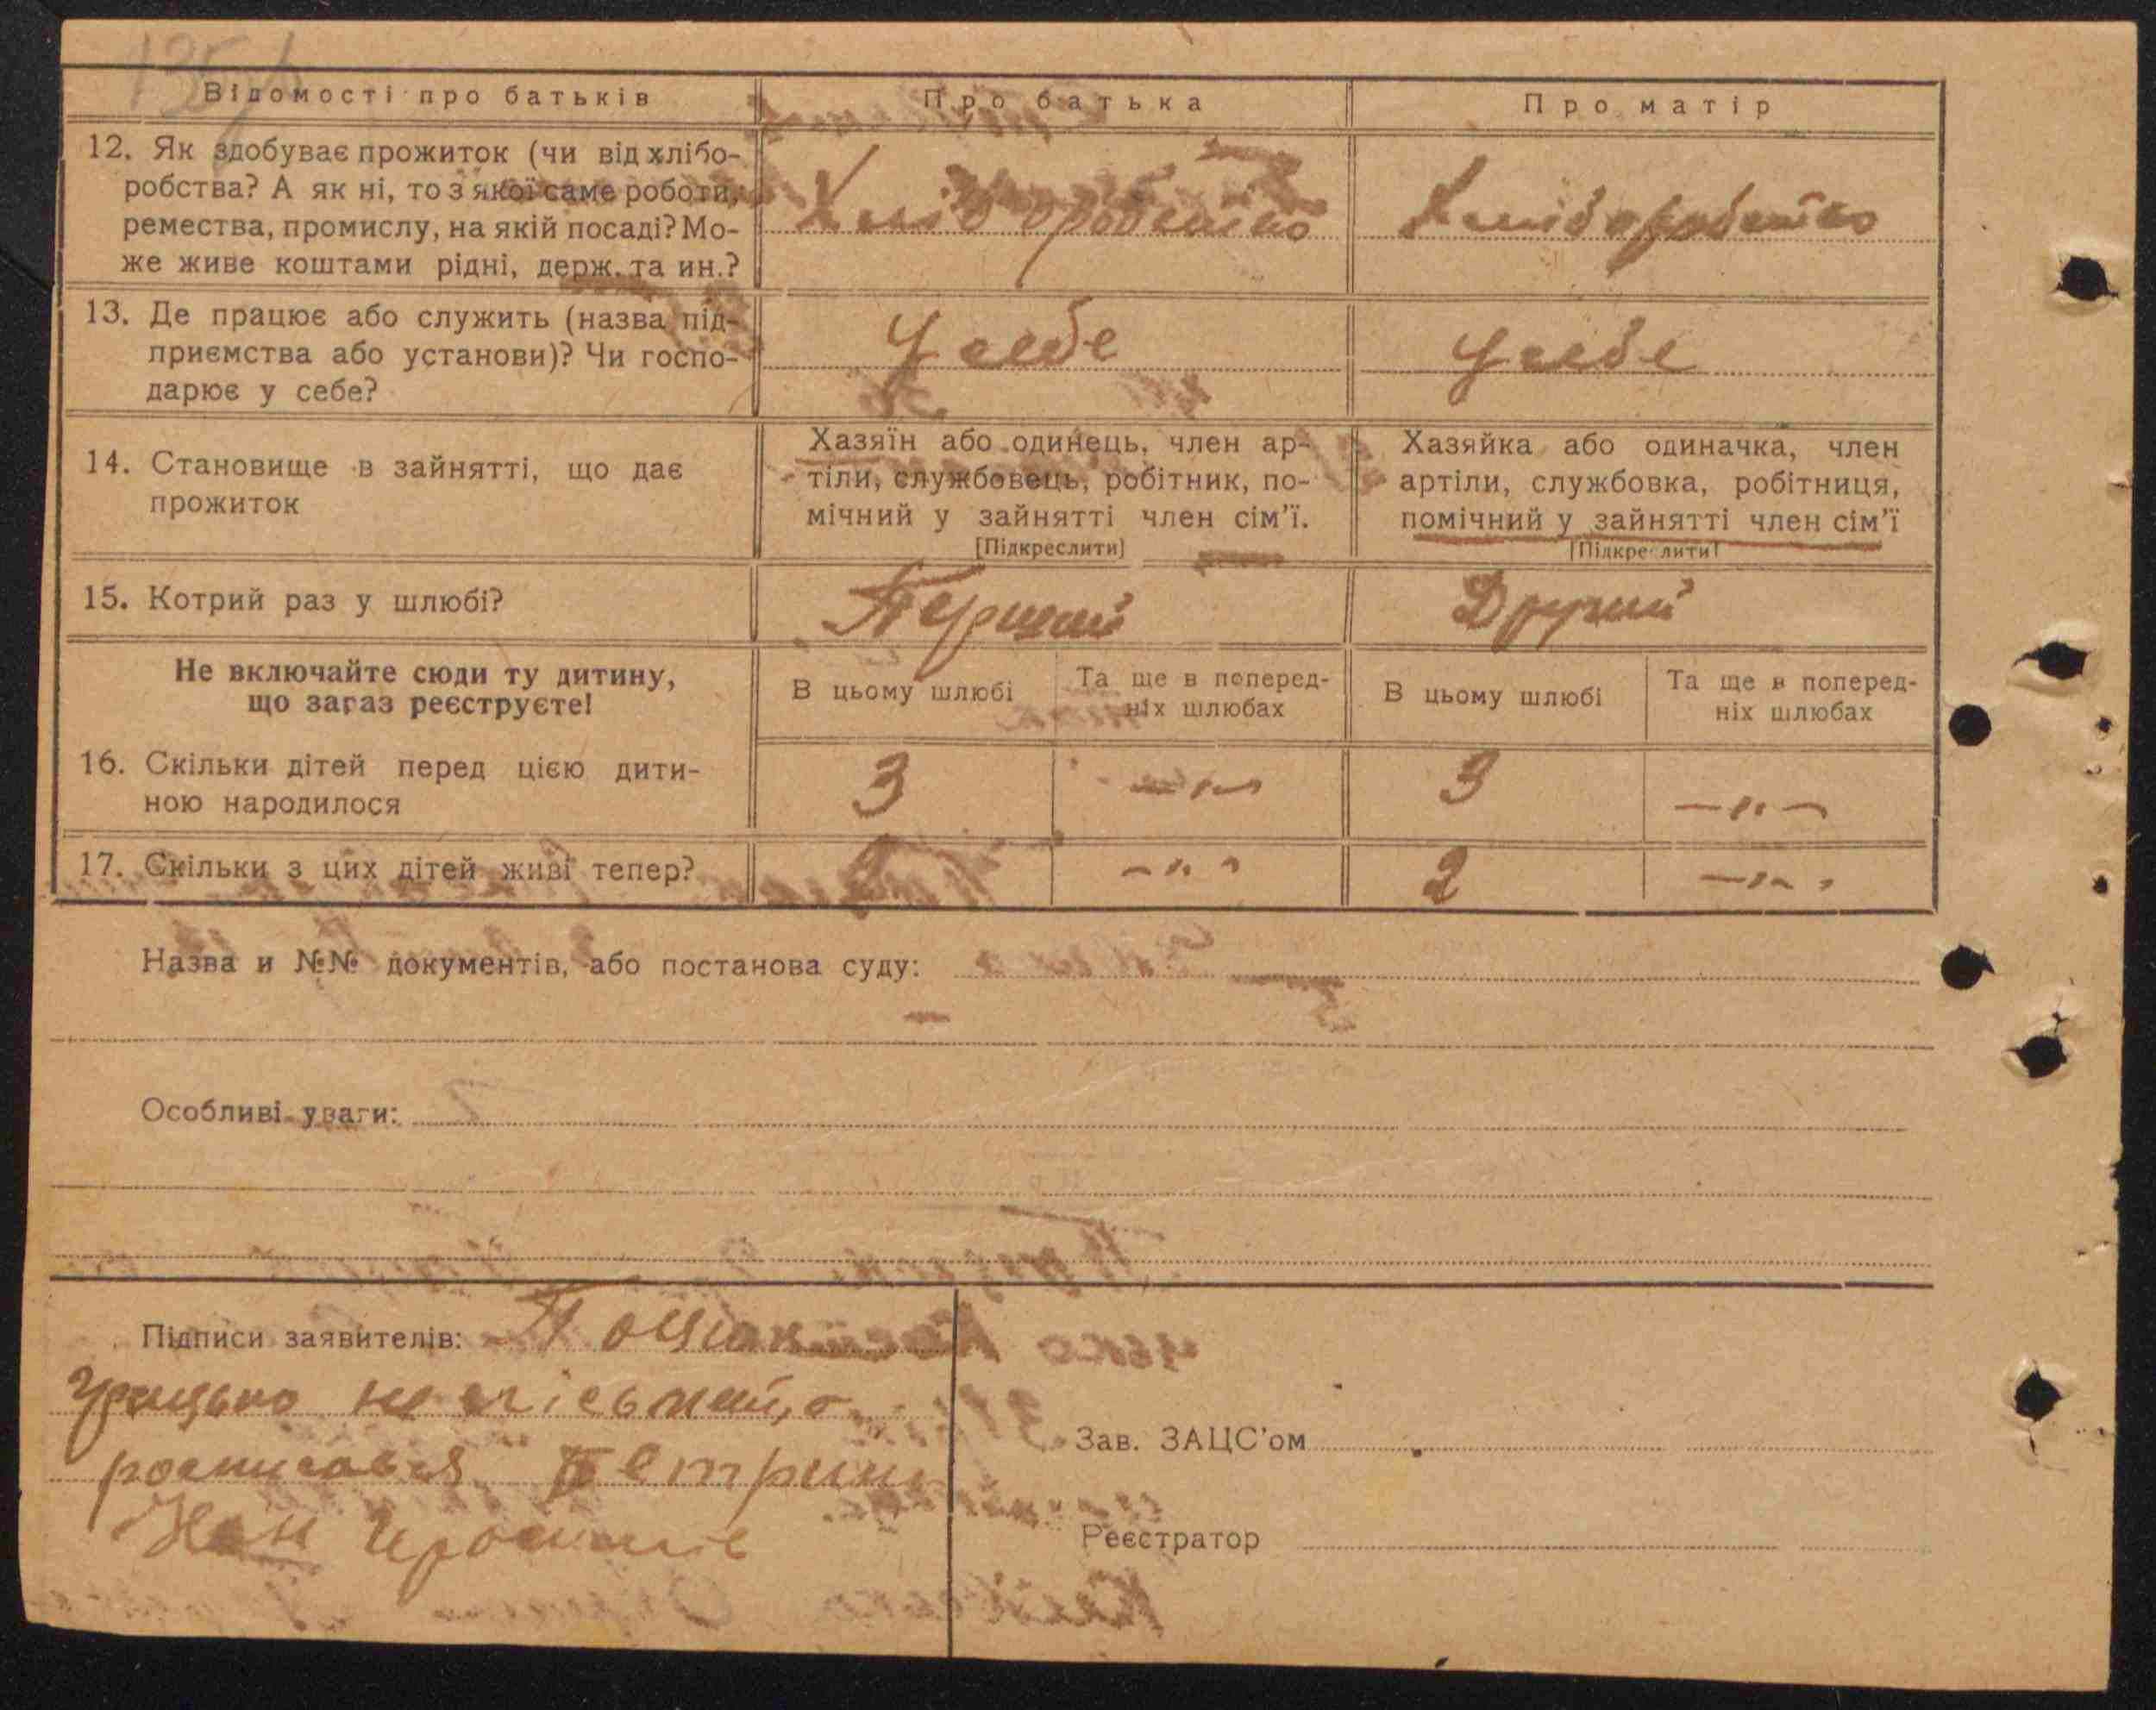 Відомості про батьків
Про батька
Про матір
12. Як здобуває прожиток (чи від хлібо-
робства? А як ні, то з якої саме роботи,
ремества, промислу, на якій посаді? Мо-
же живе коштами рідні, держ. та ин.?
Хліборобство
Хліборобство
13. Де працює або служить (назва під-
приємства або установи)? Чи госпо-
дарює у себе?
У себе
У себе
14. Становище в зайнятті, що дає
прожиток
Хазяїн або одинець, член ар-
тіли, службовець, робітник, по-
мічний у зайнятті член сім'ї.
[Підкреслити]
Хазяйка або одиначка, член
артіли, службовка, робітниця,
помічний у зайнятті член сім'ї
[Підкреслити]
15. Котрий раз у шлюбі?
Перший
Другий
Не включайте сюди ту дитину,
що зараз реєструєте!
В цьому шлюбі
Та ще в поперед-
ніх шлюбах
В цьому шлюбі
Та ще в поперед-
ніх шлюбах
16. Скільки дітей перед цією дити-
ною народилося
3
—"—
3
—"—
17. Скільки з цих дітей живі тепер?
—"—
2
—"—
Назва и №№ документів, або постанова суду:
Особливі уваги:
Підписи заявителів:
Грицько
росписався
Зав. ЗАЦС'ом
Реєстратор